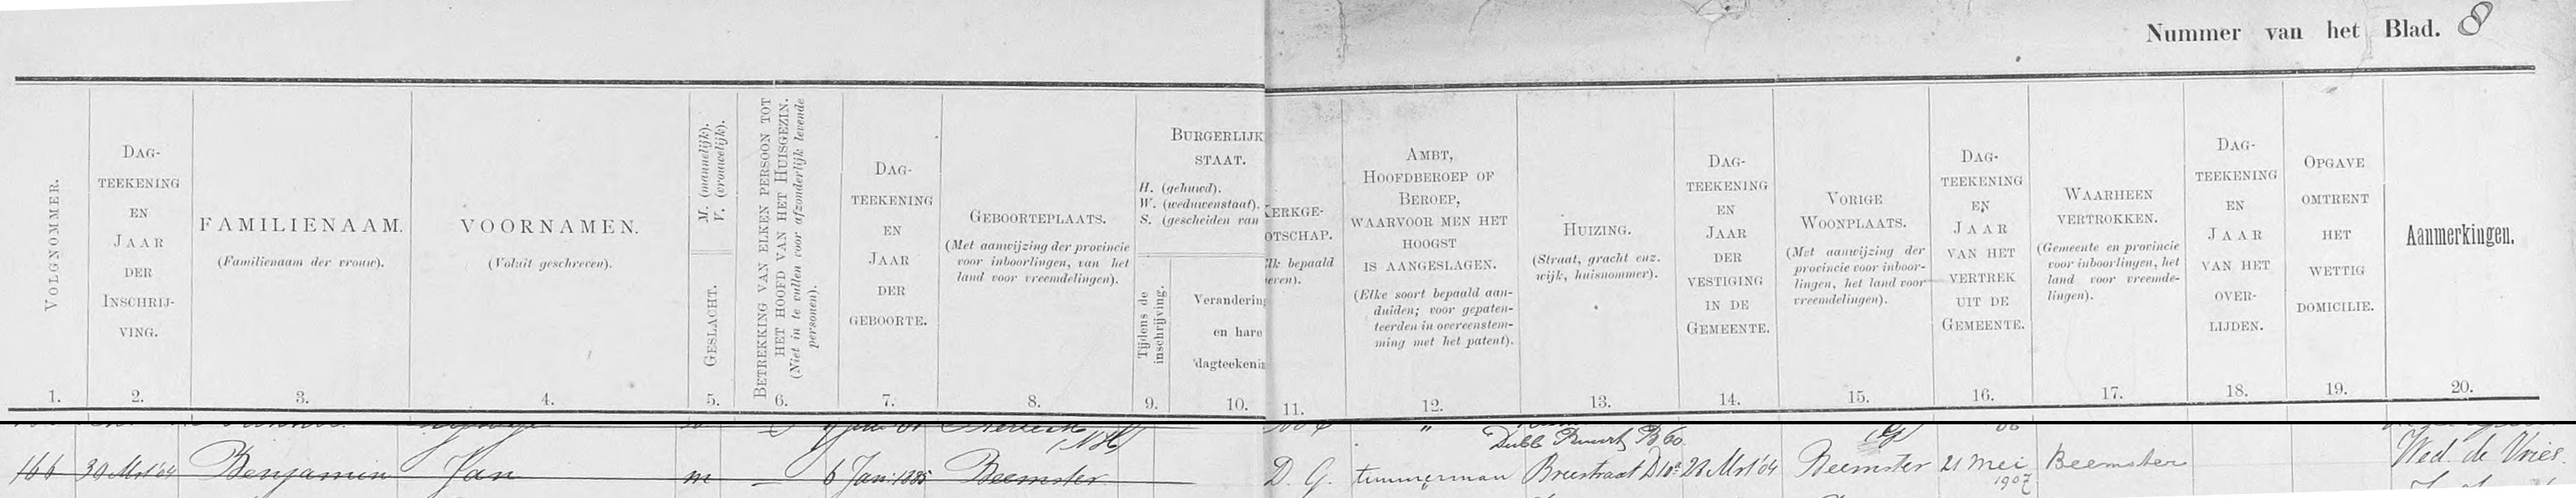 Nummer van het Blad. 8
VOLGNOMMER.
1.
DAG-
TEEKENING
EN
JAAR
DER
INSCHRIJ-
VING.
2.
FAMILIENAAM.
(Familienaam der vrouw).
3.
VOORNAMEN.
(Voluit geschreven).
4.
M. (mannelijk).
V. (vrouwelijk).
GESLACHT.
5.
BETREKKING VAN ELKEN PERSOON TOT
HET HOOFD VAN HET HUISGEZIN.
(Niet in te vullen voor afzonderlijk levende
personen).
6.
DAG-
TEEKENING
EN
JAAR
DER
GEBOORTE.
7.
GEBOORTEPLAATS.
(Met aanwijzing der provincie
voor inboorlingen, van het
land voor vreemdelingen).
8.
BURGERLIJK
STAAT.
H. (gehuwd).
W. (weduwenstaat).
S. (gescheiden van
Tijdens de
inschrijving.
9.
Verandering
en hare
dagteekenin
10.
KERKGE-
OTSCHAP.
Elk bepaald
even).
11.
AMBT,
HOOFDBEROEP OF
BEROEP,
WAARVOOR MEN HET
HOOGST
IS AANGESLAGEN.
(Elke soort bepaald aan-
duiden; voor gepaten-
teerden in overeenstem-
ming met het patent).
12.
HUIZING.
(Straat, gracht enz.
wijk, huisnommer).
13.
DAG-
TEEKENING
EN
JAAR
DER
VESTIGING
IN DE
GEMEENTE.
14.
VORIGE
WOONPLAATS.
(Met aanwijzing der
provincie voor inboor-
lingen, het land voor
vreemdelingen).
15.
DAG-
TEEKENING
EN
JAAR
VAN HET
VERTREK
UIT DE
GEMEENTE.
16.
WAARHEEN
VERTROKKEN.
(Gemeente en provincie
voor inboorlingen, het
land voor vreemde-
lingen).
17.
DAG-
TEEKENING
EN
JAAR
VAN HET
OVER-
LIJDEN.
18.
OPGAVE
OMTRENT
HET
WETTIG
DOMICILIE.
19.
Aanmerkingen.
20.
(NH)
Dubb Buurt B 60
166 30 Mrt '04 Benjamin Jan m 6 Jan: 1885 Beemster D. G. timmerman Breestraat D 28 Mrt '04 Beemster 21 Mei 1907 Beemster Wed. de Vries